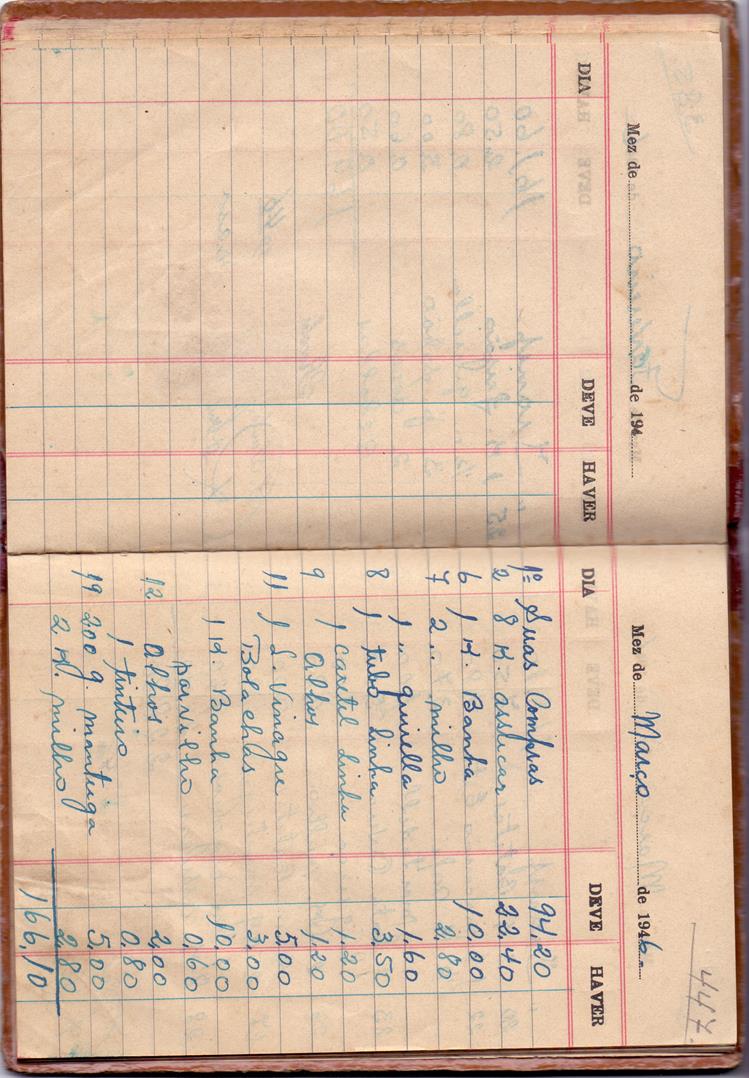 Mez de de 194
DIA DEVE HAVER
447.
Mez de Março de 1946
DIA DEVE HAVER
1º Suas Compras 94,20
2 8 K. assucar 22,40
6 1 K. Banha 10,00
7 2 .. milho 2,80
1 .. quirella 1,60
8 1 tubo linha 3,50
1 caretel linha 1,20
9 1 Alhos 1,20
11 1 L. Vinagre 5,00
Bolachas 3,00
1 K. Banha 10,00
povilho 0,60
12 Alhos 2,00
1 tinteiro 0,80
19 200 g. manteiga 5,00
2 K. milho 2,80
166,10